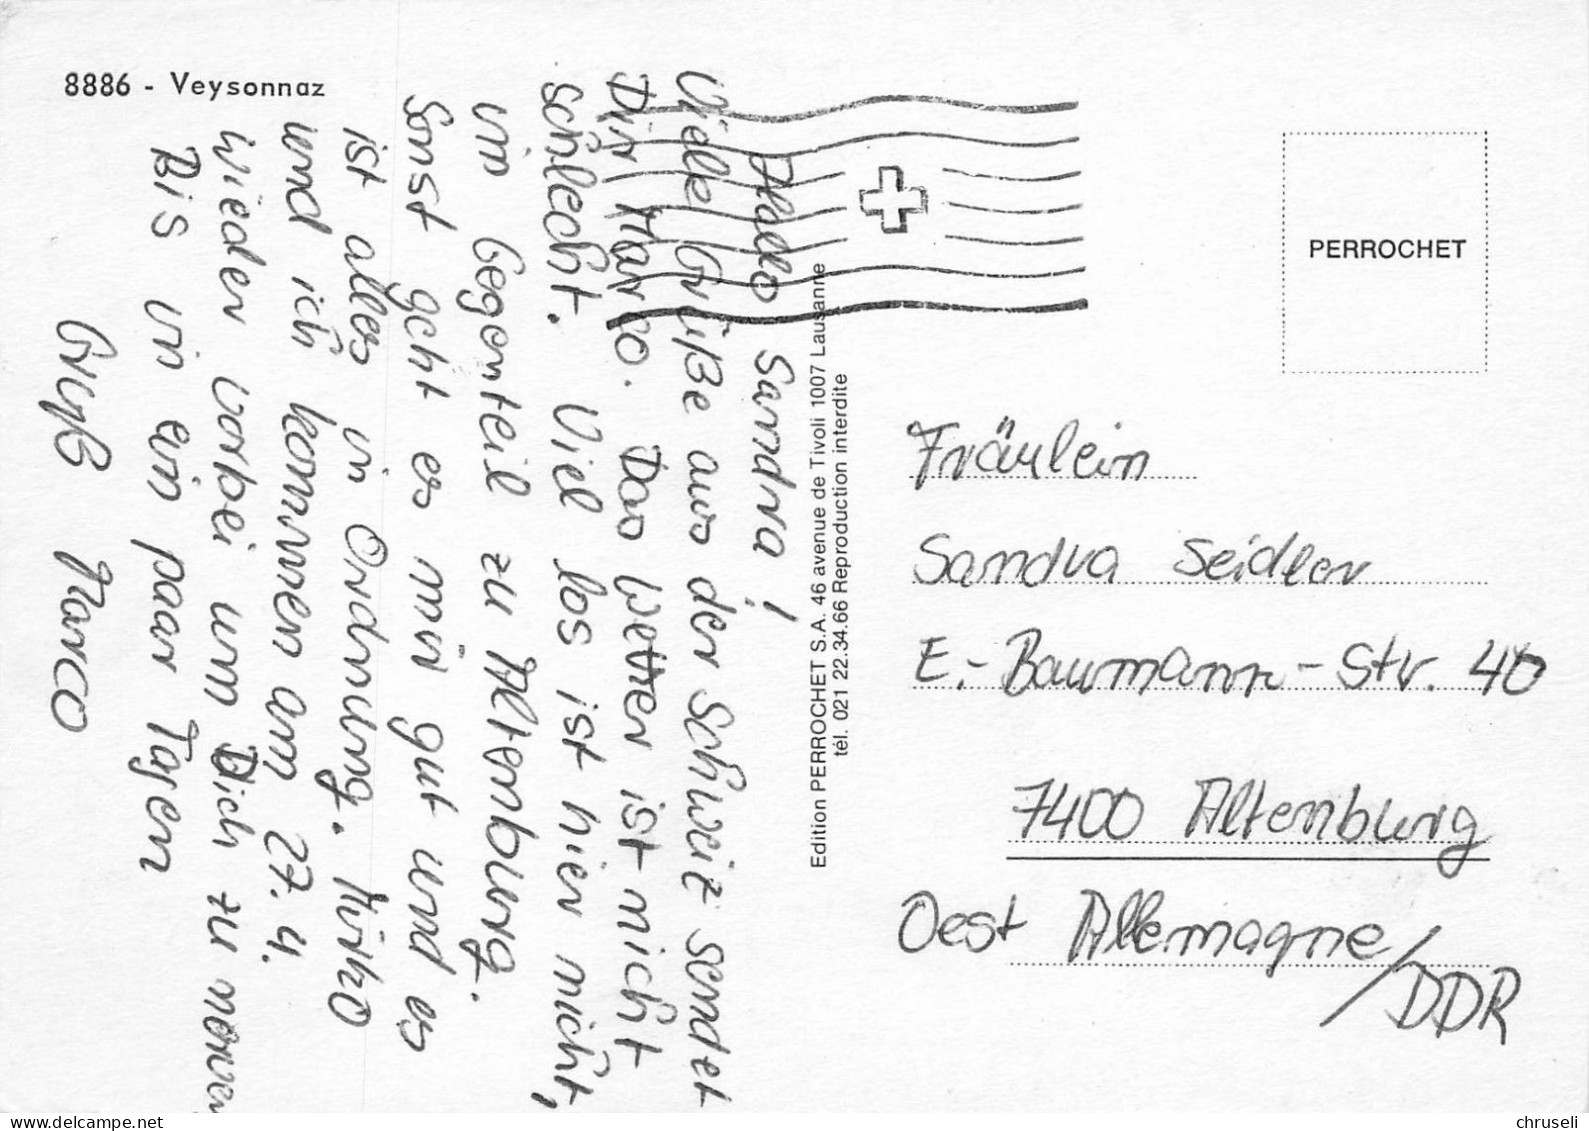 8886 - Veysonnaz
Hallo Sandra!
Viele Grüße aus der Schweiz sendet
Dir Marco. Das Wetter ist nicht
schlecht. Viel los ist hier nicht,
im Gegenteil zu Altenburg.
Sonst geht es mir gut und es
ist alles in Ordnung. Mirko
und ich kommen am 27.4.
wieder vorbei um Dich zu nerven
Bis in ein paar Tagen
Gruß Marco
Edition PERROCHET S.A. 46 avenue de Tivoli 1007 Lausanne
tél. 021 22.34.66 Reproduction interdite
PERROCHET
Fräulein
Sandra Seidler
E.-Baumann-Str. 40
7400 Altenburg
Oest Allemagne/DDR
delcampe.net
chruseli